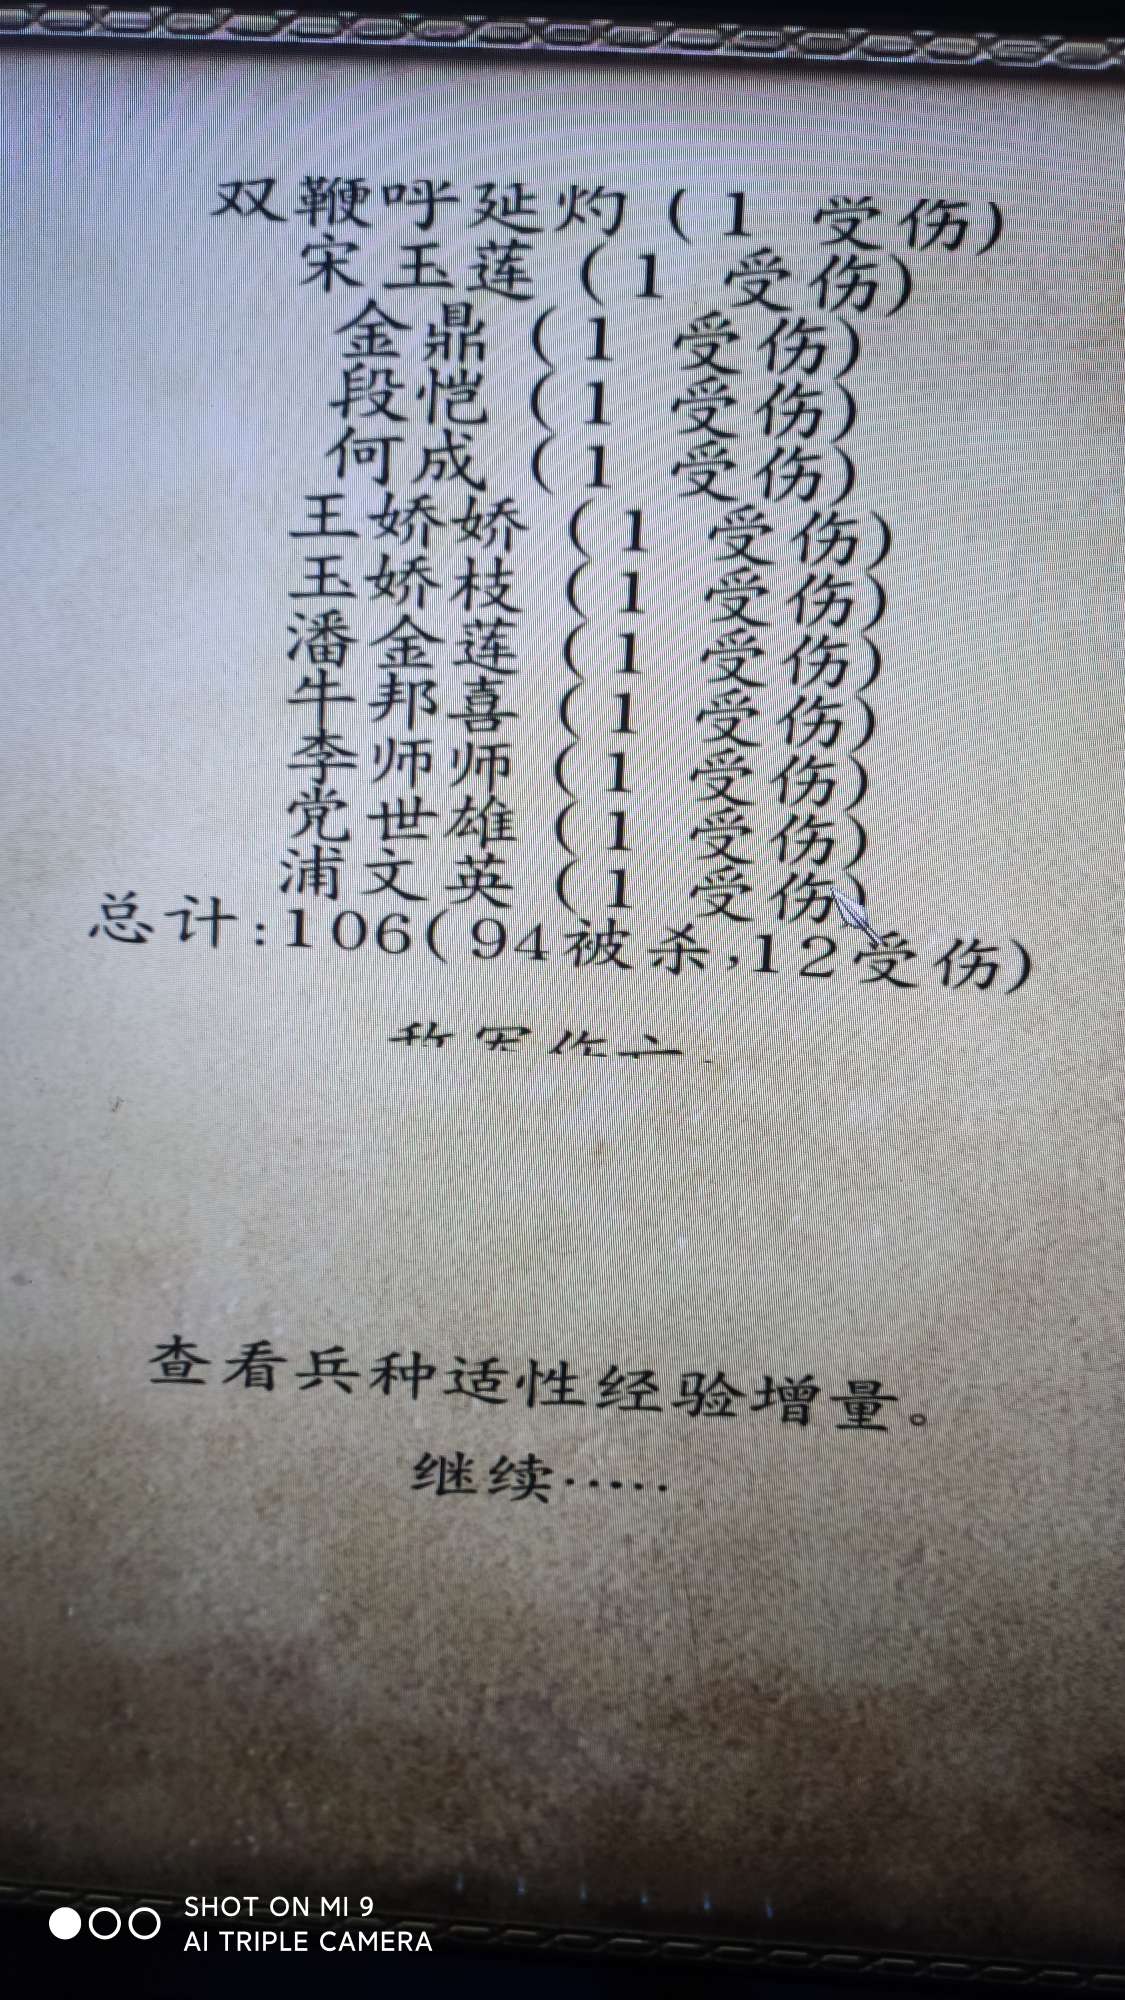 双鞭呼延灼(1 受伤)
宋玉莲(1 受伤)
金鼎(1 受伤)
段恺(1 受伤)
何成(1 受伤)
王娇娇(1 受伤)
玉娇枝(1 受伤)
潘金莲(1 受伤)
牛邦喜(1 受伤)
李师师(1 受伤)
党世雄(1 受伤)
浦文英(1 受伤)
总计:106(94被杀,12受伤)
查看兵种适性经验增量。
继续.....
SHOT ON MI 9
AI TRIPLE CAMERA